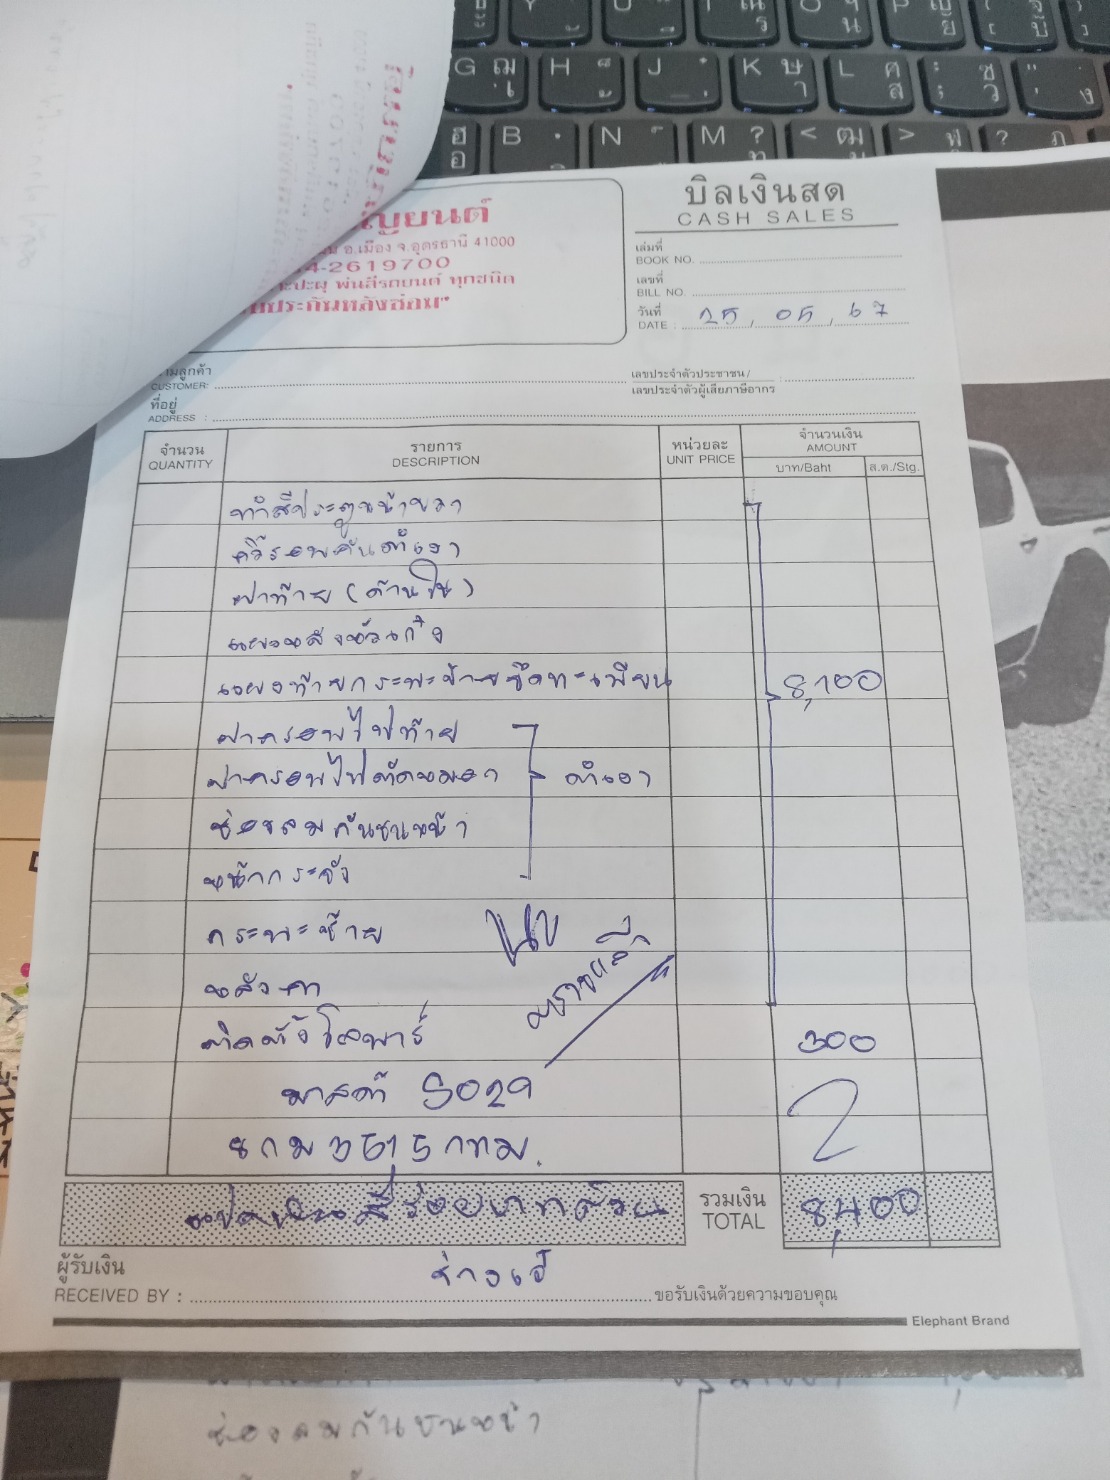 บิลเงินสด
CASH SALES
ญยนต์
อ.เมือง จ.อุดรธานี 41000
-2619700
ปะผุ พ่นสีรถยนต์ ทุกชนิด
ประกันหลังซ่อม"
เล่มที่
BOOK NO.
เลขที่
BILL NO.
วันที่
DATE : 25, 05, 67
ลูกค้า
CUSTOMER:
เลขประจำตัวประชาชน /
เลขประจำตัวผู้เสียภาษีอากร
ที่อยู่
ADDRESS :
จำนวน
QUANTITY
รายการ
DESCRIPTION
หน่วยละ
UNIT PRICE
จำนวนเงิน
AMOUNT
บาท/Baht
ส.ต./Stg.
ทำสีประตูหน้าขวา
สีรอบคันดำเงา
ฝาท้าย (ด้านใน)
แผงหลังหัวเก๋ง
แผงท้ายกระบะป้ายยึดทะเบียน 8,100
ฝาครอบไฟท้าย
ฝาครอบไฟตัดหมอก ดำเงา
ช่องลมกันชนหน้า
หน้ากระจัง
กระบะซ้าย
หลังคา
ติดตั้งโรลบาร์ 300
มาสด้า
ยกม 3515 กทม.
แปดพันสี่ร้อยบาทถ้วน
รวมเงิน
TOTAL
8,400
ผู้รับเงิน
ช่างเอ๋
RECEIVED BY : ขอรับเงินด้วยความขอบคุณ
Elephant Brand
ช่องลมกันชนหน้า